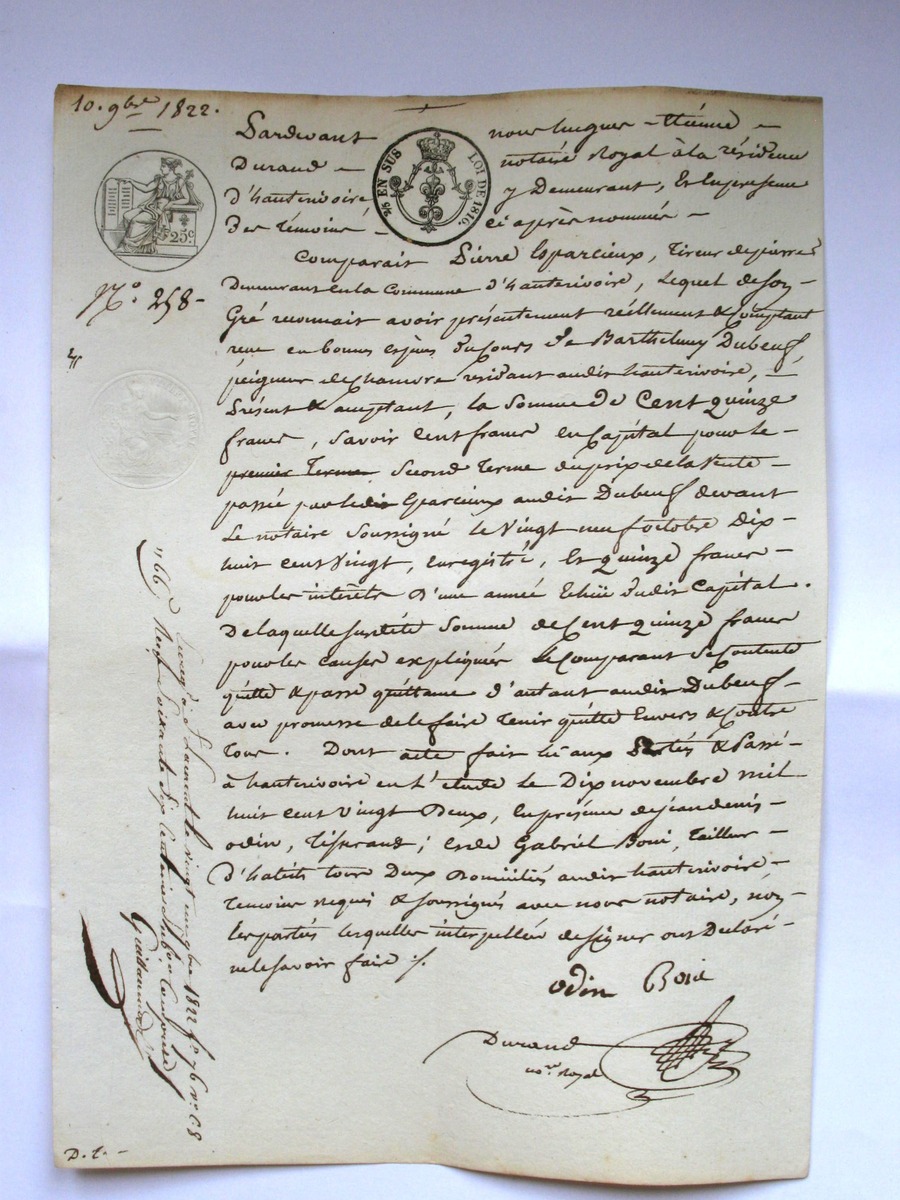 10. 9bre 1822.
Pardevant nous hugues - Etienne -
Durand - notaire Royal à la résidence
d'hauterivoire y Demeurant, Et en presence
Des témoins - ci après nommés -
25 EN SUS LOI DE 1816.
25c
N.° 258 -
Comparait Pierre Esparcieux, tireur de pierre
Demeurant en la Commune d'hauterivoire, Lequel de son
Gré reconnait avoir présentement réellement & Comptant
reçu en bonnes espèces du cours de Barthelemy Dubeuf,
peigneur de chanvre résidant audit hauterivoire, -
Présent & acceptant, la Somme De Cent quinze
francs, Savoir Cent francs en Capital pour le
premier Terme Second Terme du prix de la Vente -
passée par ledit Eparcieux audit Dubeuf devant
Le notaire Soussigné le Vingt neuf octobre Dix -
huit cent Vingt, Enregistré, Et quinze francs -
pour les intérêts D'une année Echue dudit Capital.
De laquelle susdite Somme de Cent quinze francs
pour les causes expliquées Le Comparant Se Contente
quitte & passe quittance d'autant audit Dubeuf -
avec promesse de le faire Tenir quitte Envers & Contre
Tous. Dont acte fait lû aux Parties & Passé -
à hauterivoire en l'étude le Dix novembre mil
huit cent Vingt Deux, En présence de jean denis -
odin, Tisserand; et de Gabriel Boni, Tailleur -
D'habits tous Deux Domiciliés audit hauterivoire -
Temoins requis & soussignés avec nous notaire, non
les parties lesquelles interpellées de signer ont Declaré -
ne le savoir faire ./.
odin Boni
Durand
nore Royal
Enreg. à St Laurent le vingt un 9bre 1822 fo 76 no C 8
Reçu soixante dix centimes subvon Comprise
Guillaume
D. t. -